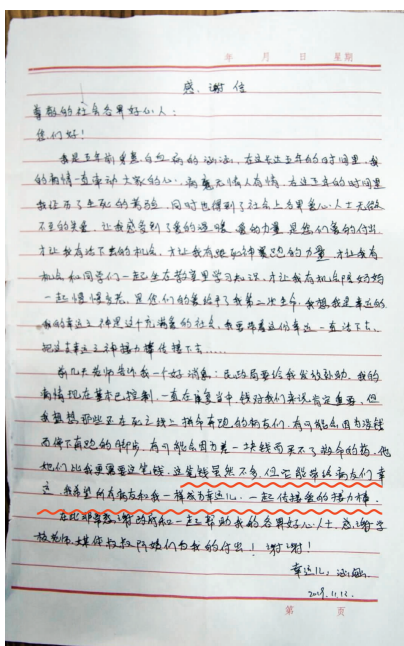 年 月 日 星期
感谢信
尊敬的社会各界好心人：
您们好！
我是五年前患白血病的涵涵，在这长达五年的时间里，我
的病情一直牵动大家的心，病魔无情人有情，在这五年的时间里
我经历了生死的考验，同时也得到了社会上各界爱心人士无微
不至的关爱，让我感受到了爱的温暖，爱的力量，是您们爱的付出，
才让我有活下去的机会，才让我有跑的力量，才让我有
机会和同学们一起坐在教室里学习知识，才让我有机会陪妈妈
一起慢慢变老，是您们的爱给予了我第二次生命，我想我是幸运的
我的幸运之神是这个充满爱的社会，我要带着这份幸运一直活下去，
把这幸运之神接力棒传接下去……
前几天老师告诉我一个好消息：民政局要给我发放补助，我的
病情现在基本已控制，一直在康复当中，钱对我们来说肯定重要，但
我想想那些还在死亡线上拼命奔跑的病友们，有可能会因为没钱
而停下奔跑的脚步，有可能会因为差一块钱而买不了救命的药，他
她们比我更需要这笔钱，这笔钱虽然不多，但它能带给病友们幸
运，我希望所有病友和我一样成为幸运儿，一起传接爱的接力棒。
在此非常感谢政府和一起帮助我的各界好心人士，感谢学
校老师，媒体叔叔阿姨们为我的付出！谢谢！
幸运儿：涵涵
11.12.
第 页